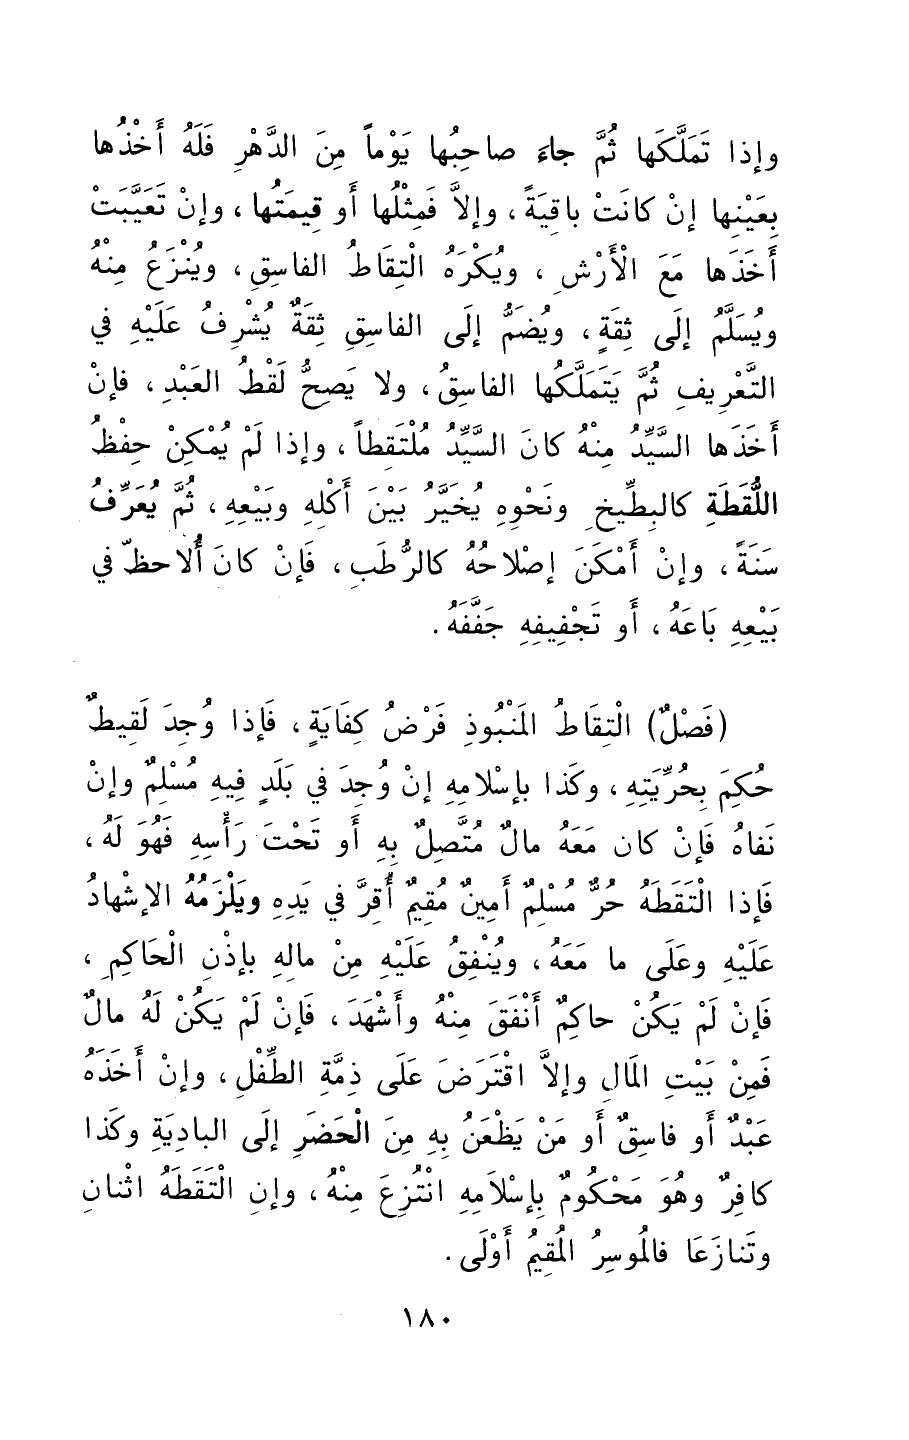 وإذا تَمَلَّكَها ثُمَّ جاءَ صاحِبُها يَوْماً مِنَ الدَّهْرِ فَلَهُ أَخْذُها
بِعَيْنِها إنْ كانَتْ باقِيَةً ، وإلاَّ فَمِثْلُها أو قِيمَتُها ، وإنْ تَعَيَّبَتْ
أَخَذَها مَعَ الْأَرْشِ ، ويُكْرَهُ الْتِقَاطُ الفاسِقِ ، ويُنْزَعُ مِنْهُ
ويُسَلَّمُ إلَى ثِقَةٍ ، ويُضَمُّ إلَى الفاسِقِ ثِقَةٌ يُشْرِفُ عَلَيْهِ في
التَّعْرِيفِ ثُمَّ يَتَمَلَّكُها الفاسِقُ ، ولا يَصِحُّ لَقْطُ العَبْدِ ، فإنْ
أَخَذَها السَّيِّدُ مِنْهُ كانَ السَّيِّدُ مُلْتَقِطاً ، وإذا لَمْ يُمْكِنْ حِفْظُ
اللُّقَطَةِ كالبِطِّيخِ ونَحْوِهِ يُخَيَّرُ بَيْنَ أَكْلِهِ وبَيْعِهِ ، ثُمَّ يُعَرِّفُ
سَنَةً ، وإنْ أَمْكَنَ إصْلاحُهُ كالرُّطَبِ ، فَإنْ كانَ أُلاحظّ في
بَيْعِهِ بَاعَهُ ، أَو تَجْفِيفِهِ جَفَّفَهُ .
(فَصْلٌ) الْتِقَاطُ المَنْبُوذِ فَرْضُ كِفَايَةٍ ، فَإذا وُجِدَ لَقِيطٌ
حُكِمَ بِحُرِّيَتِهِ ، وكَذا بإسْلامِهِ إنْ وُجِدَ في بَلَدٍ فِيهِ مُسْلِمٌ وإنْ
نَفاهُ فَإنْ كان مَعَهُ مالٌ مُتَّصِلٌ بِهِ أَو تَحْتَ رَأْسِهِ فَهُوَ لَهُ ،
فَإذا الْتَقَطَهُ حُرٌّ مُسْلِمٌ أَمِينٌ مُقِيمٌ أُقِرَّ في يَدِهِ ويَلْزَمُهُ الإشْهادُ
عَلَيْهِ وعَلَى ما مَعَهُ ، ويُنْفِقُ عَلَيْهِ مِنْ مالِهِ بإذْنِ الْحَاكِمِ ،
فَإنْ لَمْ يَكُنْ حاكِمٌ أَنْفَقَ مِنْهُ وأَشْهَدَ ، فَإنْ لَمْ يَكُنْ لَهُ مالٌ
فَمِنْ بَيْتِ المَالِ وإلاَّ اقْتَرَضَ عَلَى ذِمَّةِ الطِّفْلِ ، وإنْ أَخَذَهُ
عَبْدٌ أَو فاسِقٌ أَو مَنْ يَظْعَنُ بِهِ مِنَ الْحَضَرِ إلَى البادِيَةِ وكَذا
كافِرٌ وهُوَ مَحْكُومٌ بِإسْلَامِهِ انْتُزِعَ مِنْهُ ، وإنِ الْتَقَطَهُ اثْنانِ
وتَنازَعَا فالمُوسِرُ المُقِيمُ أَوْلَى .
١٨٠